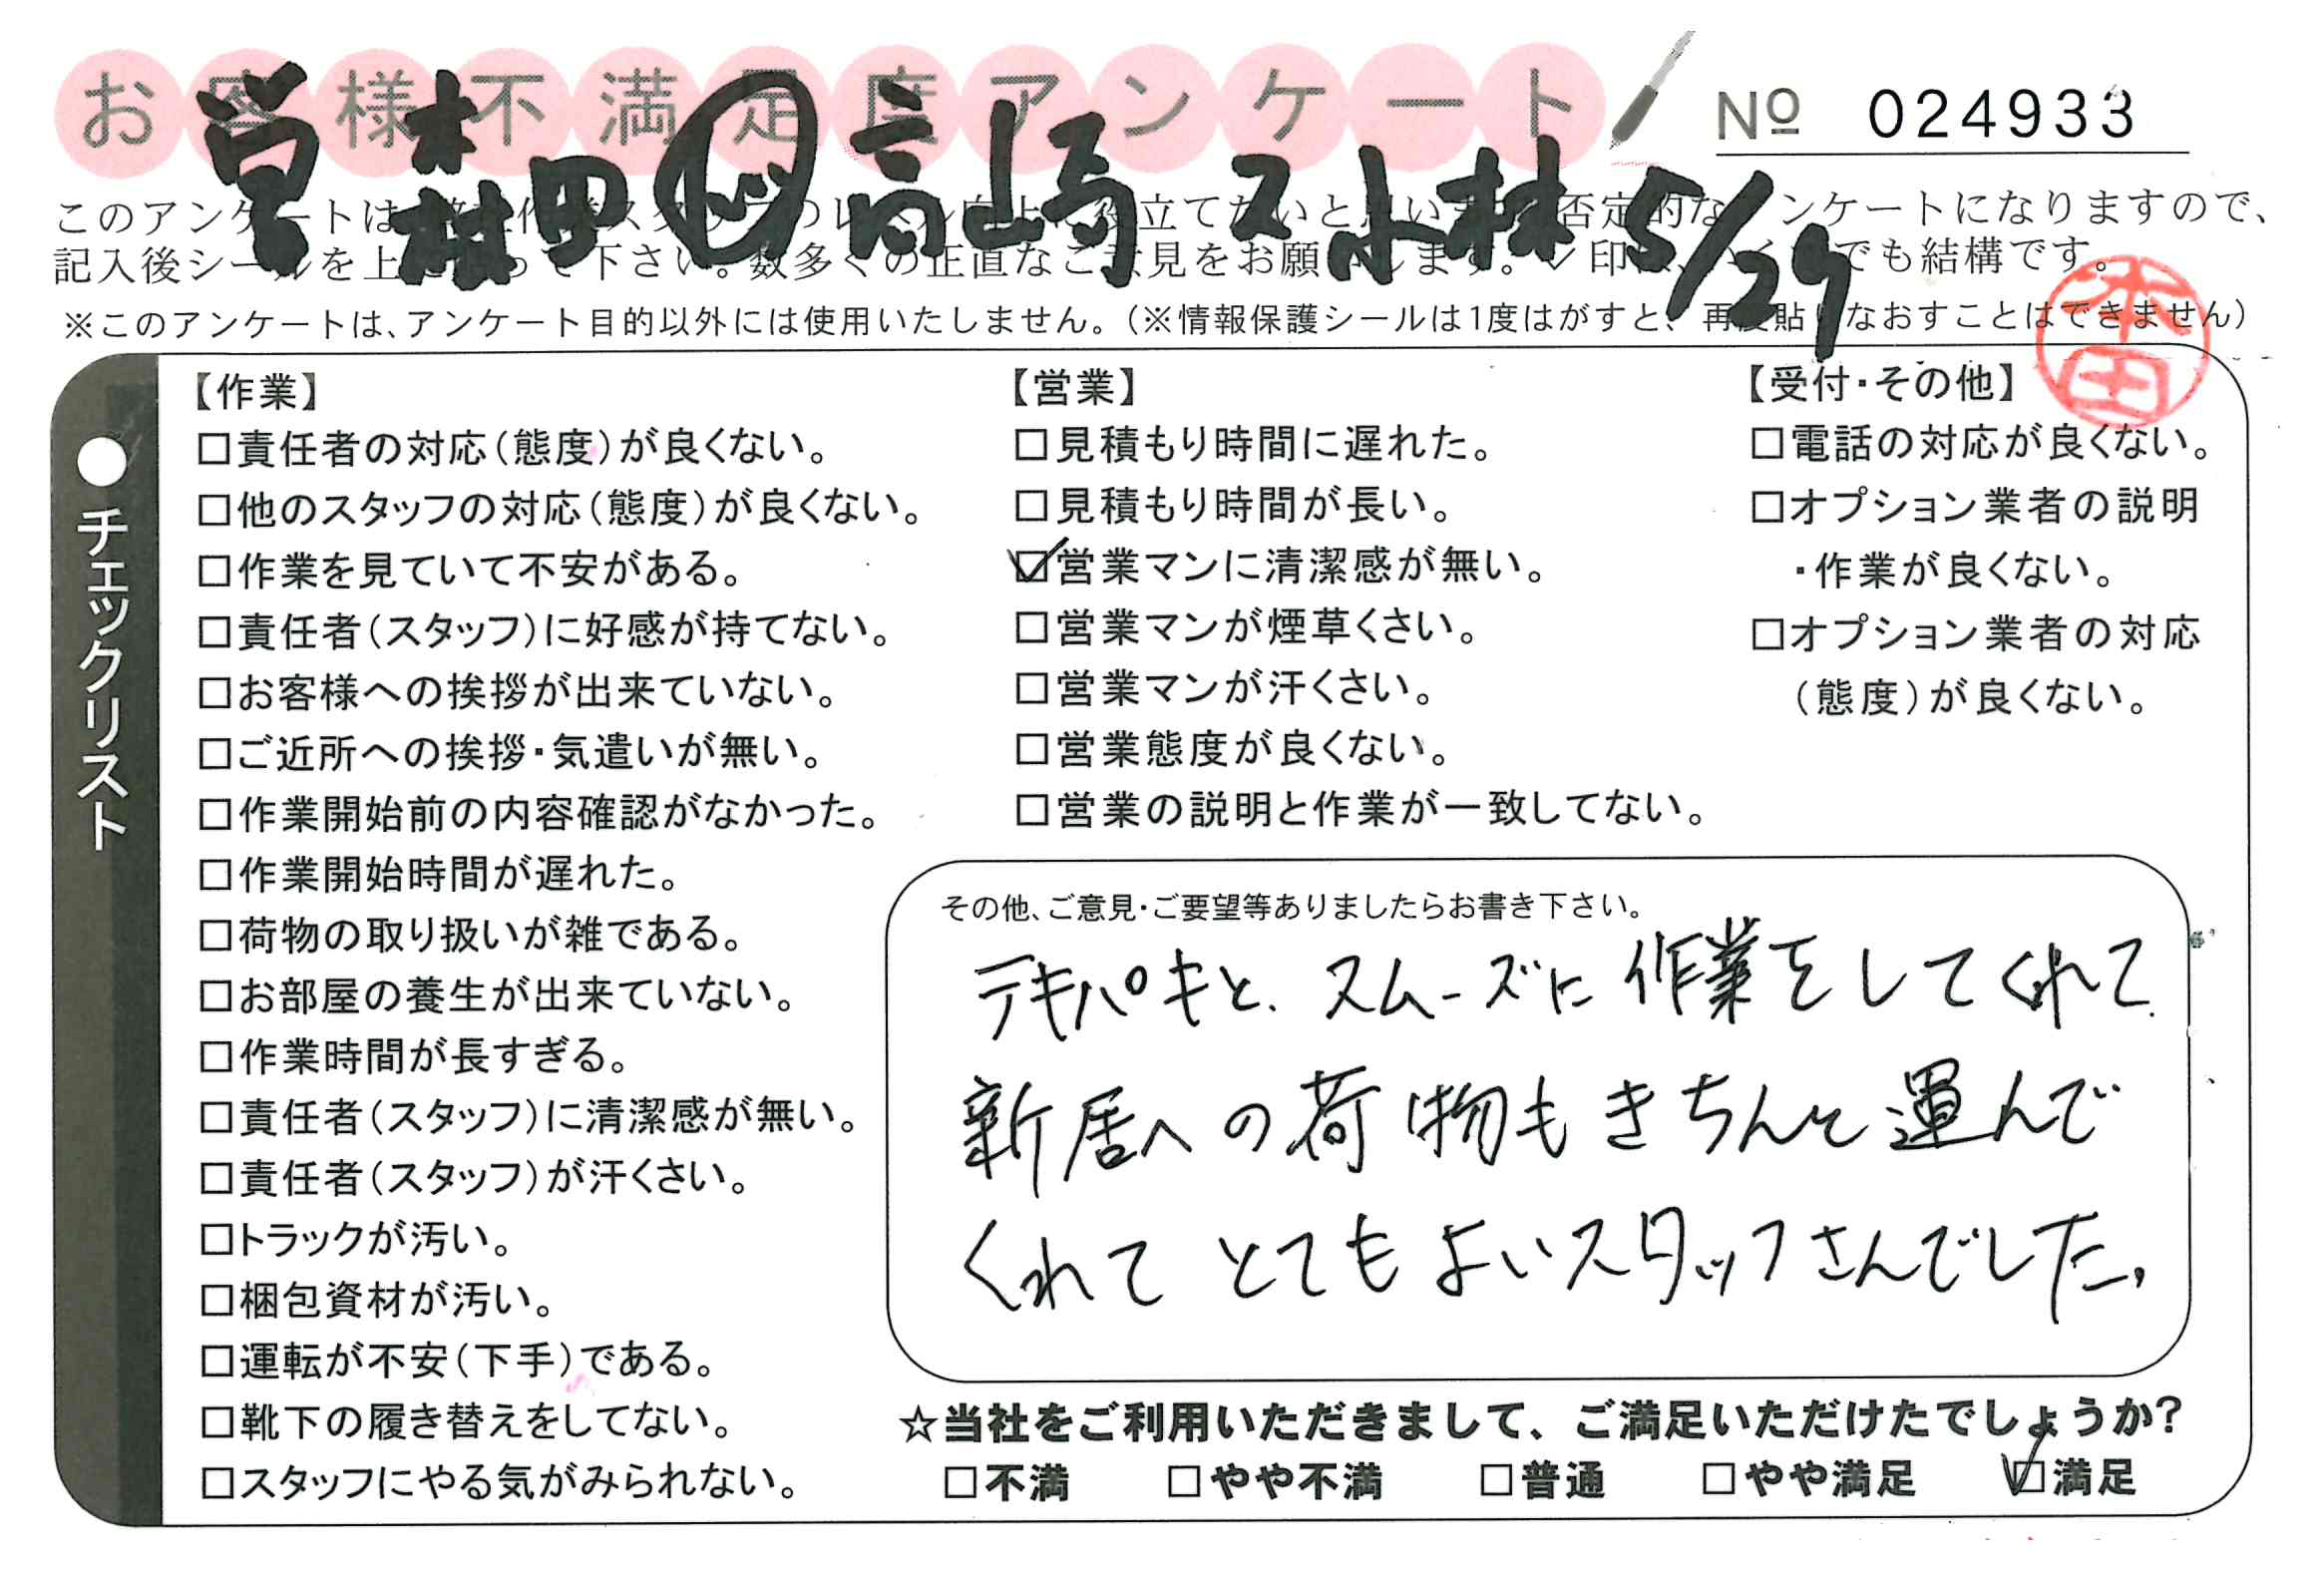 お客様不満足度アンケート
№ 024933
営 村田 ド 高崎 ス 小林 5/29
このアンケートは、スタッフのレベル向上に役立てたいと思います。否定的なアンケートになりますので、
記入後シールを上に貼って下さい。数多くの正直なご意見をお願いします。✓印は、いくつでも結構です。
※このアンケートは、アンケート目的以外には使用いたしません。(※情報保護シールは1度はがすと、再度貼りなおすことはできません)
本田
●チェックリスト
【作業】
□責任者の対応(態度)が良くない。
□他のスタッフの対応(態度)が良くない。
□作業を見ていて不安がある。
□責任者(スタッフ)に好感が持てない。
□お客様への挨拶が出来ていない。
□ご近所への挨拶・気遣いが無い。
□作業開始前の内容確認がなかった。
□作業開始時間が遅れた。
□荷物の取り扱いが雑である。
□お部屋の養生が出来ていない。
□作業時間が長すぎる。
□責任者(スタッフ)に清潔感が無い。
□責任者(スタッフ)が汗くさい。
□トラックが汚い。
□梱包資材が汚い。
□運転が不安(下手)である。
□靴下の履き替えをしてない。
□スタッフにやる気がみられない。
【営業】
□見積もり時間に遅れた。
□見積もり時間が長い。
☑営業マンに清潔感が無い。
□営業マンが煙草くさい。
□営業マンが汗くさい。
□営業態度が良くない。
□営業の説明と作業が一致してない。
【受付・その他】
□電話の対応が良くない。
□オプション業者の説明
・作業が良くない。
□オプション業者の対応
(態度)が良くない。
その他、ご意見・ご要望等ありましたらお書き下さい。
テキパキと、スムーズに作業をしてくれて、
新居への荷物もきちんと運んで
くれて とてもよいスタッフさんでした。
☆当社をご利用いただきまして、ご満足いただけたでしょうか?
□不満 □やや不満 □普通 □やや満足 ☑満足